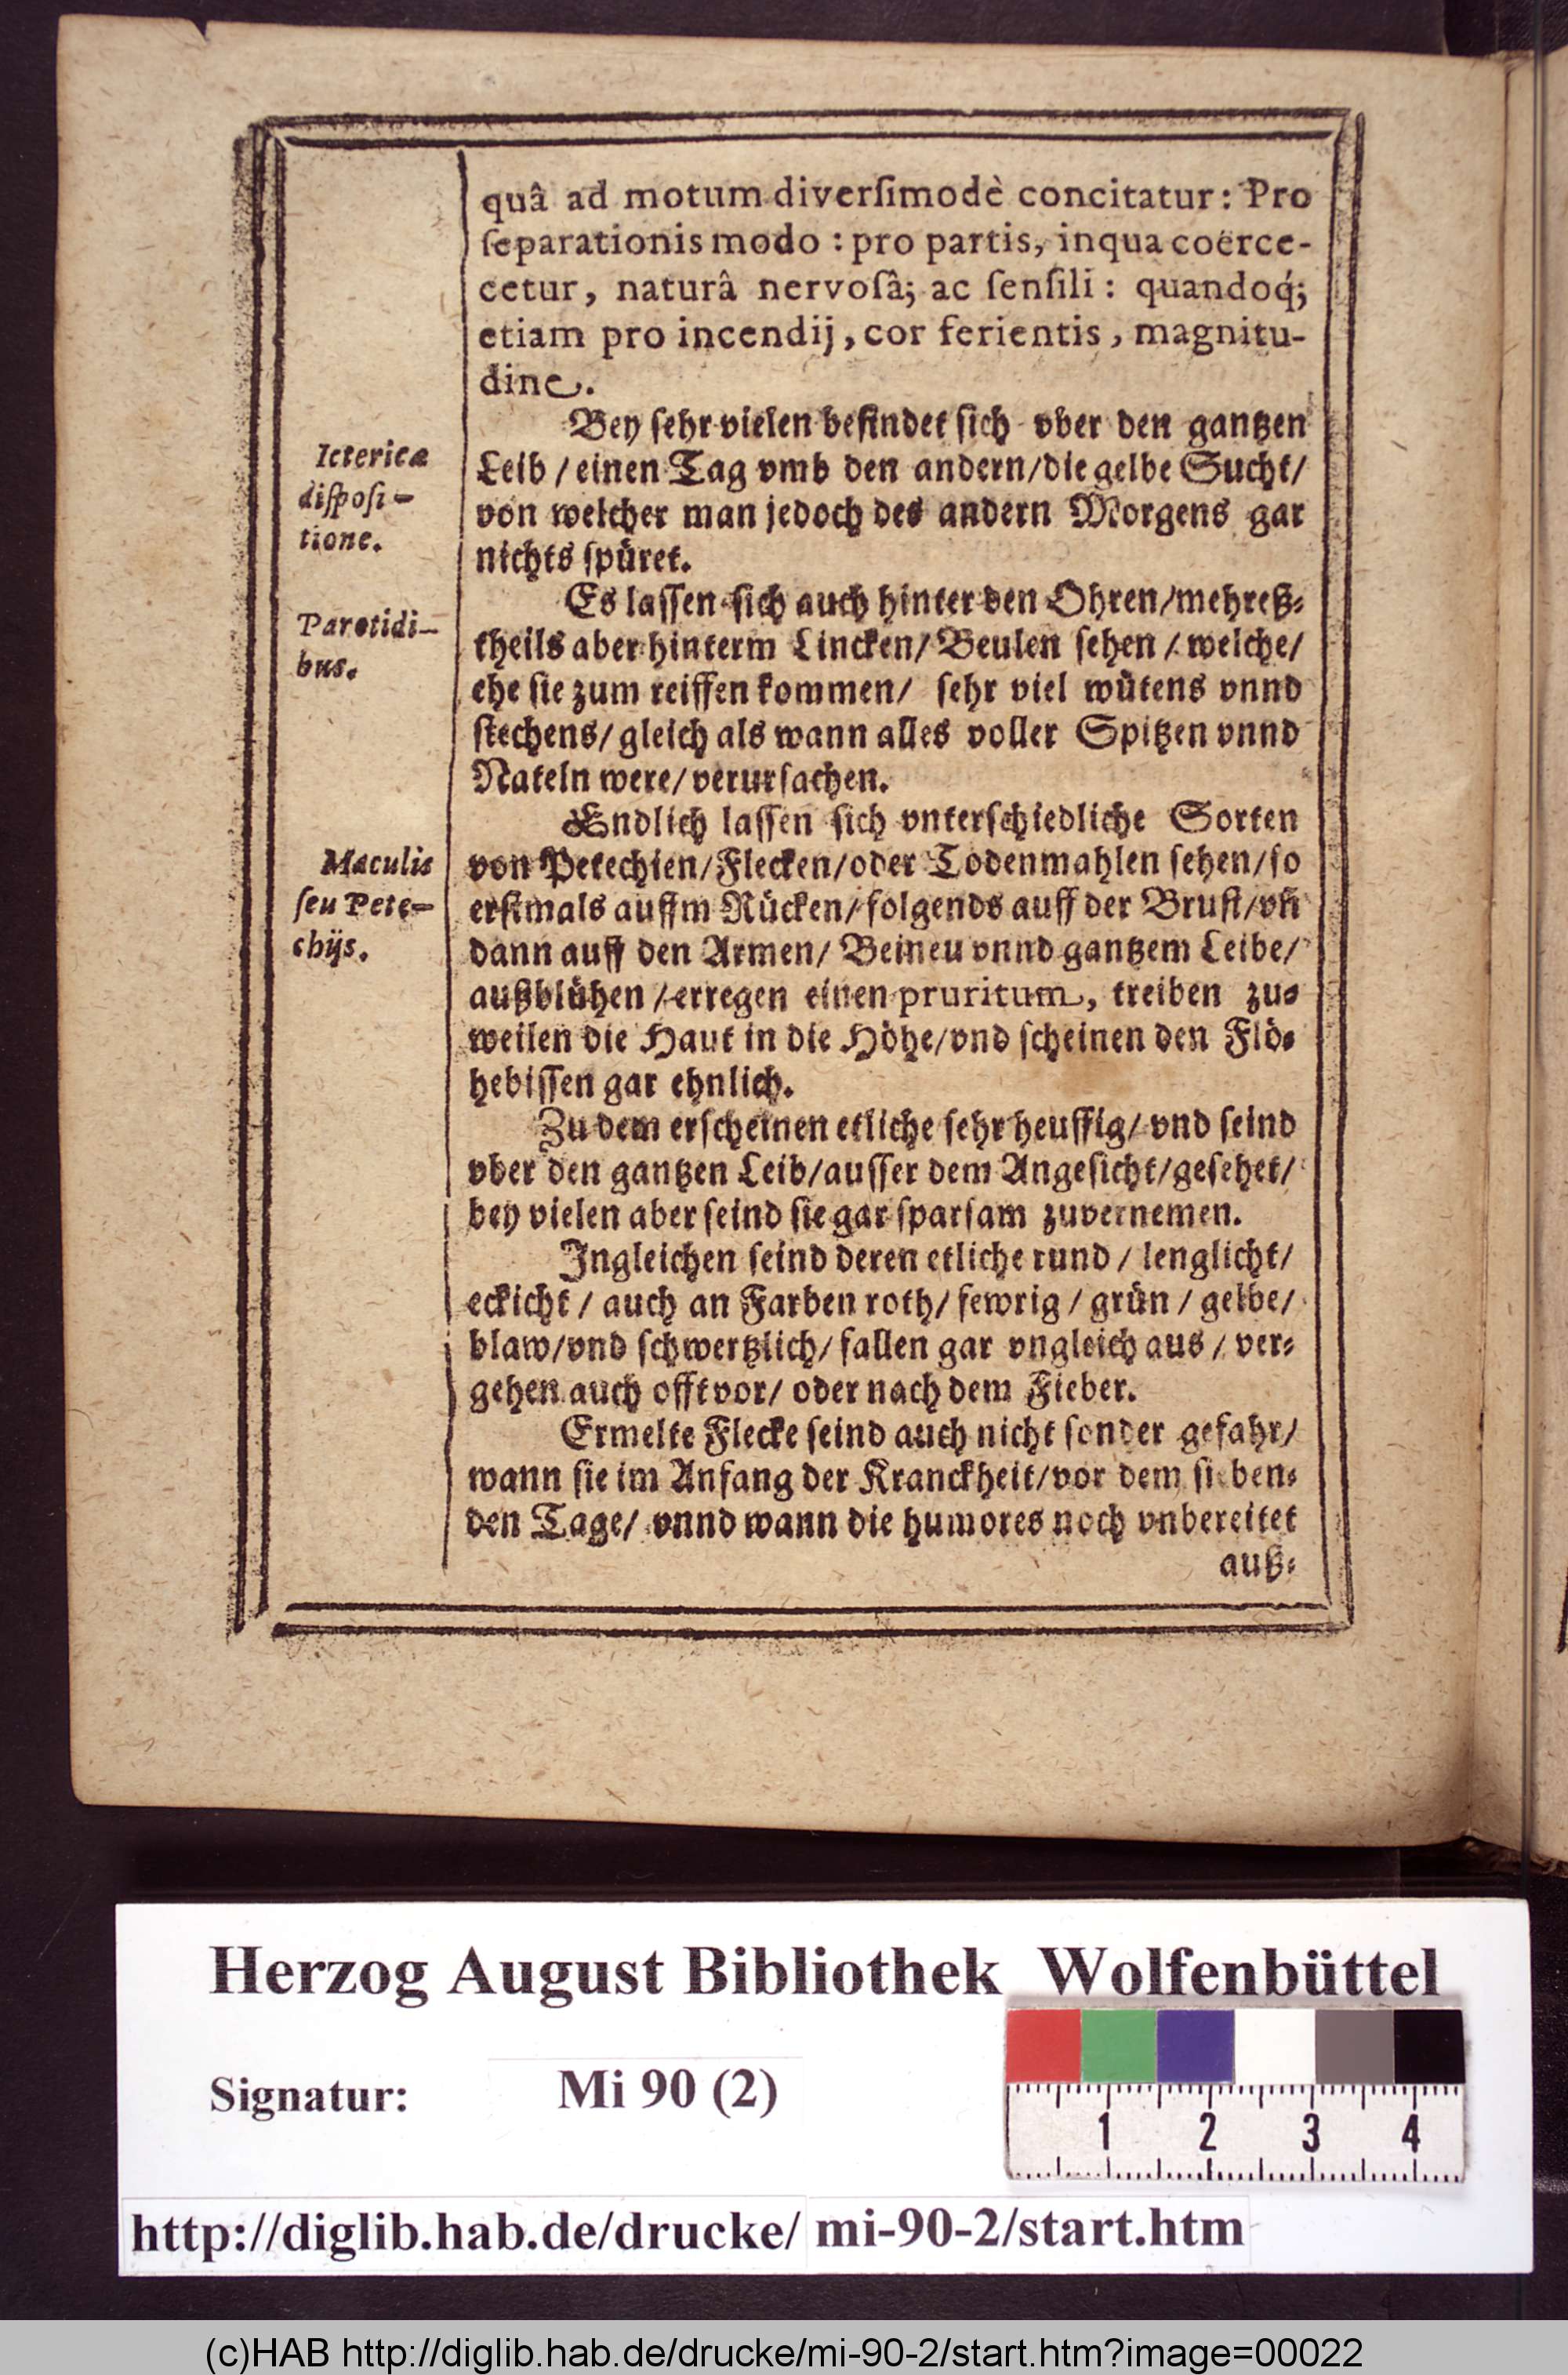 quâ ad motum diverſimodè concitatur: Pro
ſeparationis modo : pro partis, inqua coërce-
cetur, naturâ nervoſâ; ac ſenſili: quandoq́;
etiam pro incendij, cor ferientis, magnitu-
dine.
Bey ſehr vielen befindet ſich vber den gantzen
Leib / einen Tag vmb den andern/die gelbe Sucht/
von welcher man jedoch des andern Morgens gar
nichts ſpüret.
Icterica
diſpoſi-
tione.
Es laſſen ſich auch hinter den Ohren/mehreß-
theils aber hinterm Lincken/ Beulen ſehen / welche/
ehe ſie zum reiffen kommen/ ſehr viel wütens vnnd
ſtechens/ gleich als wann alles voller Spitzen vnnd
Nateln were/ verurſachen.
Parotidi-
bus.
Endlich laſſen ſich vnterſchiedliche Sorten
von Petechien/Flecken/oder Todenmahlen ſehen/ſo
erſtmals auffm Rücken/ folgends auff der Bruſt/vñ
dann auff den Armen/ Beineu vnnd gantzem Leibe/
außblühen / erregen einen pruritum, treiben zu-
weilen die Haut in die Höhe/vnd ſcheinen den Flö-
hebiſſen gar ehnlich.
Maculis
ſeu Pete-
chijs.
Zu dem erſcheinen etliche ſehr heuffig/ vnd ſeind
vber den gantzen Leib/auſſer dem Angeſicht/geſehet/
bey vielen aber ſeind ſie gar ſparſam zuvernemen.
Ingleichen ſeind deren etliche rund / lenglicht/
eckicht / auch an Farben roth/ fewrig / grün / gelbe/
blaw/vnd ſchwertzlich/ fallen gar vngleich aus / ver-
gehen auch offt vor/ oder nach dem Fieber.
Ermelte Flecke ſeind auch nicht ſonder gefahr/
wann ſie im Anfang der Kranckheit/vor dem ſieben-
den Tage/ vnnd wann die humores noch vnbereitet
auß-
Herzog August Bibliothek Wolfenbüttel
Signatur: Mi 90 (2)
1 2 3 4
http://diglib.hab.de/drucke/ mi-90-2/start.htm
(c)HAB http://diglib.hab.de/drucke/mi-90-2/start.htm?image=00022